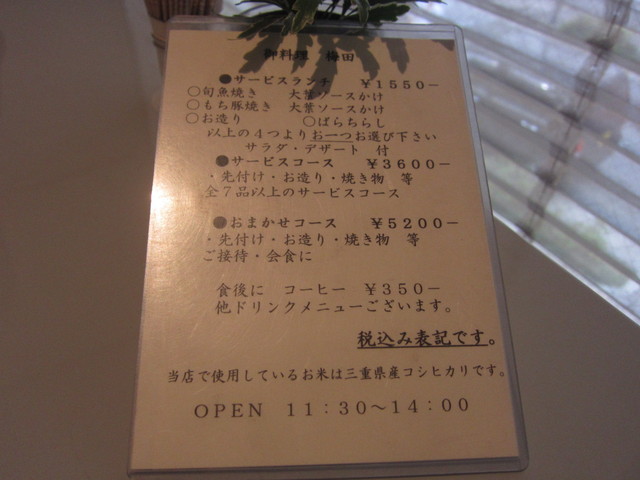 御料理　梅田
●サービスランチ　　￥１５５０－
○旬魚焼き　　大葉ソースかけ
○もち豚焼き　大葉ソースかけ
○お造り　　　　　○ばらちらし
以上の４つよりお一つお選び下さい
サラダ・デザート　付
●サービスコース　　￥３６００－
・先付け・お造り・焼き物　等
全７品以上のサービスコース
●おまかせコース　　￥５２００－
・先付け・お造り・焼き物　等
ご接待・会食に
食後に　コーヒー　￥３５０－
他ドリンクメニューございます。
税込み表記です。
当店で使用しているお米は三重県産コシヒカリです。
ＯＰＥＮ　１１：３０～１４：００